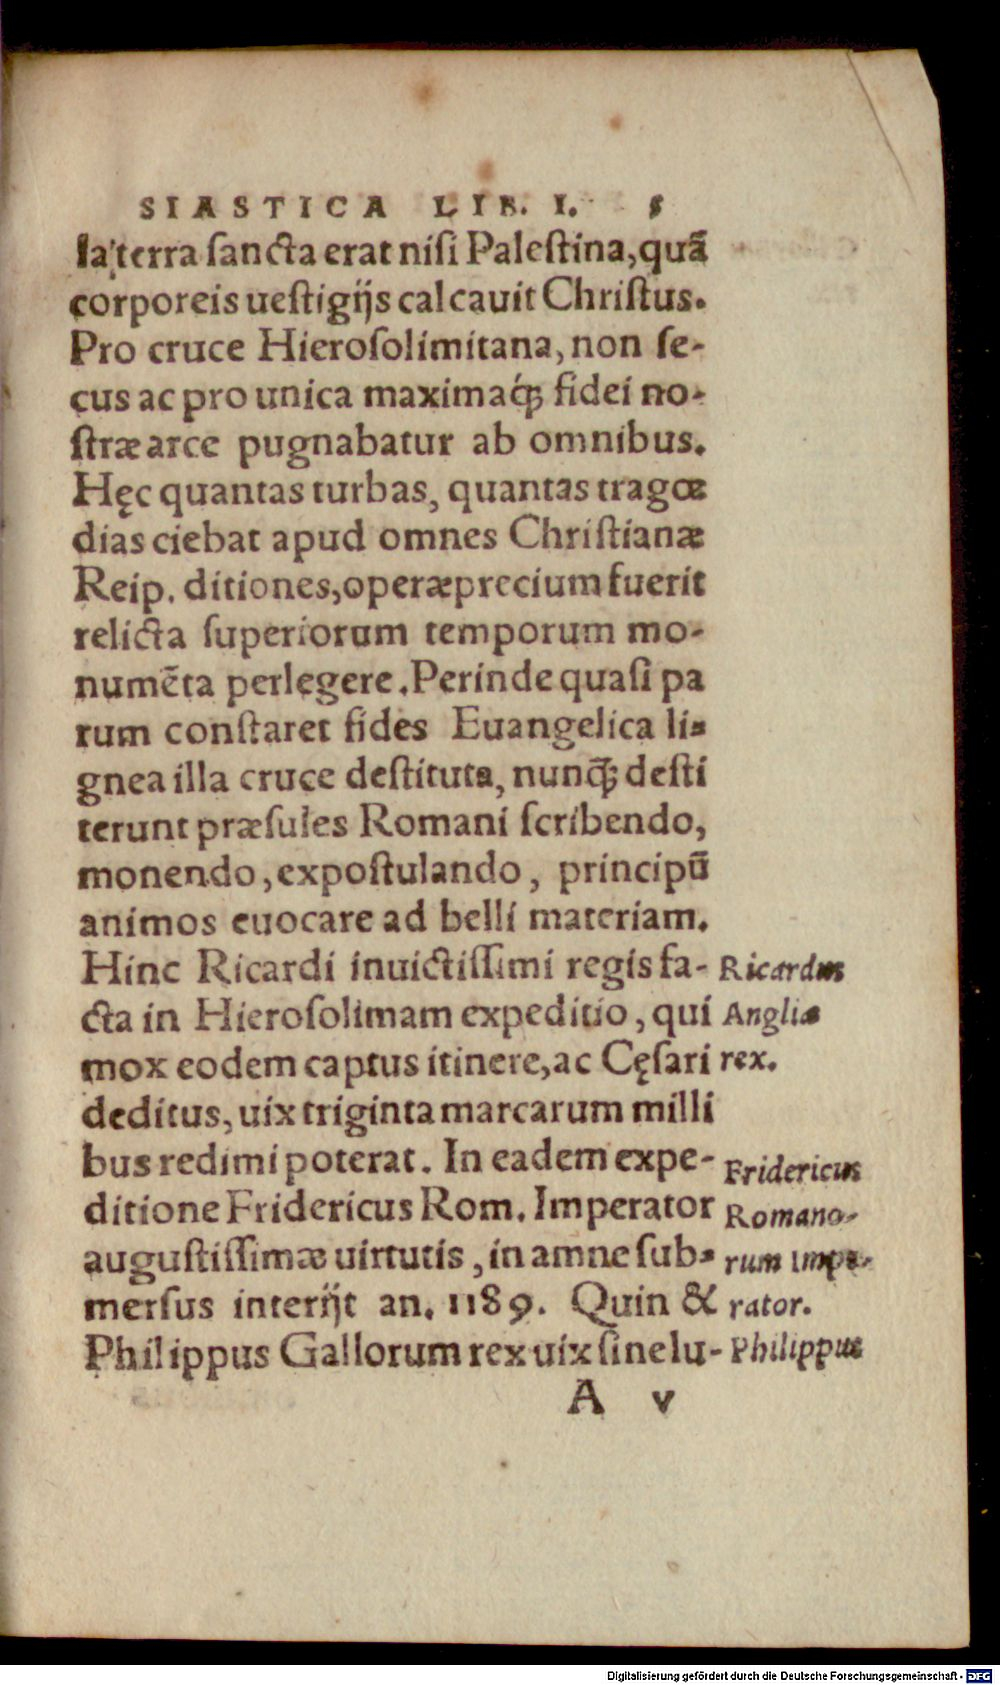 SIASTICA LIB. I. 5
la terra sancta erat nisi Palestina, quā
corporeis uestigijs calcauit Christus.
Pro cruce Hierosolimitana, non se-
cus ac pro unica maximaq́; fidei no-
stræ arce pugnabatur ab omnibus.
Hęc quantas turbas, quantas tragœ
dias ciebat apud omnes Christianæ
Reip. ditiones, operæprecium fuerit
relicta superiorum temporum mo-
numēta perlegere. Perinde quasi pa
rum constaret fides Euangelica li-
gnea illa cruce destituta, nunq̃; desti
terunt præsules Romani scribendo,
monendo, expostulando, principū
animos euocare ad belli materiam.
Hinc Ricardi inuictissimi regis fa- Ricardus
cta in Hierosolimam expeditio, qui Angliæ
mox eodem captus itinere, ac Cęsari rex.
deditus, uix triginta marcarum milli
bus redimi poterat. In eadem expe- Fridericus
ditione Fridericus Rom. Imperator Romano-
augustissimæ uirtutis, in amne sub- rum impe-
mersus interijt an. 1189. Quin & rator.
Philippus Gallorum rex uix sine lu- Philippus
A v
Digitalisierung gefördert durch die Deutsche Forschungsgemeinschaft - DFG